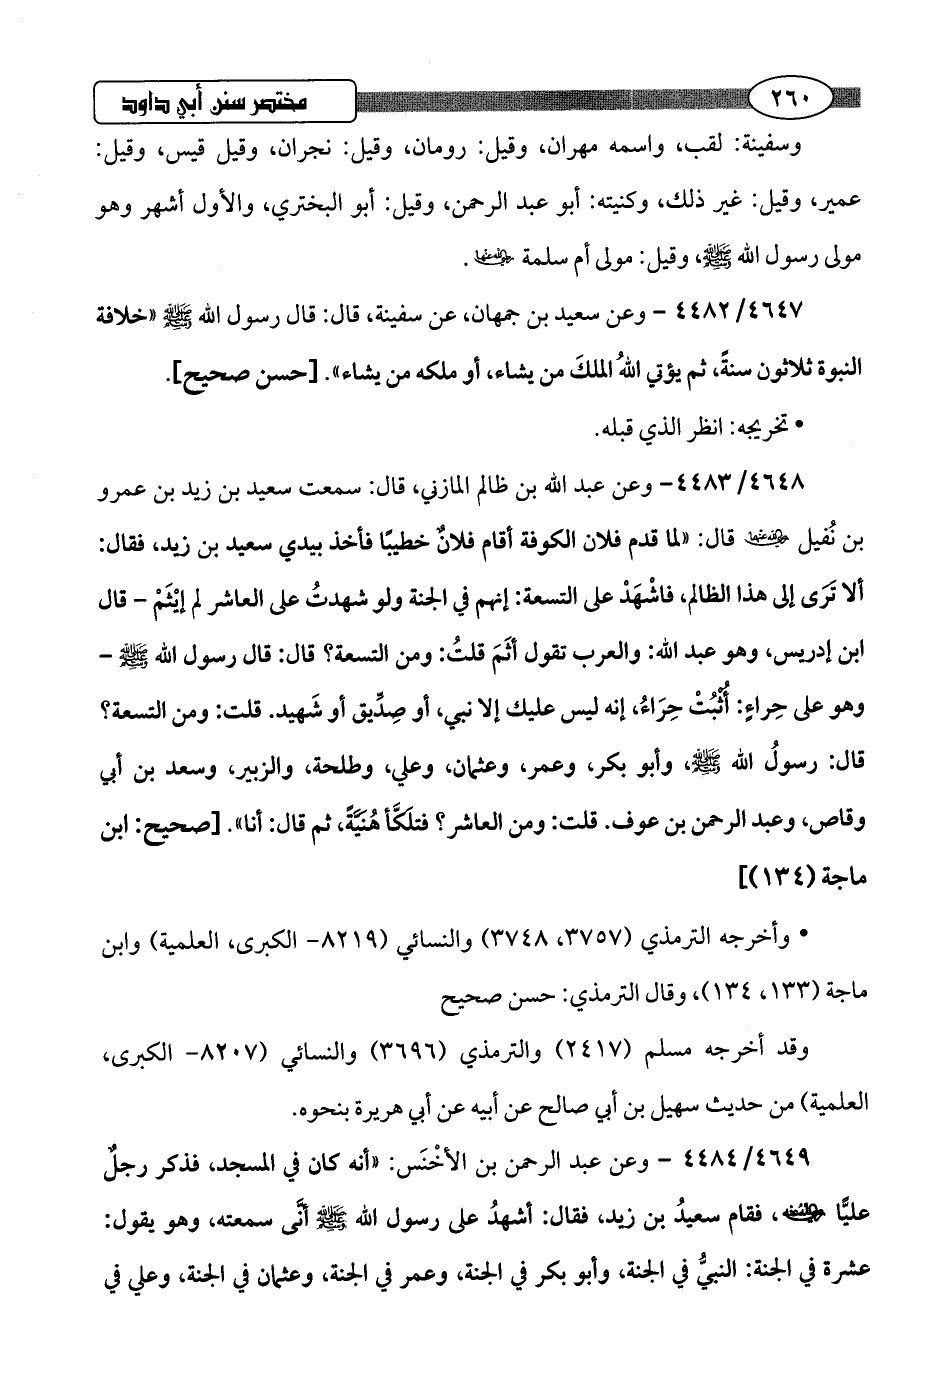 ٢٦٠
مختصر سنن أبي داود
وسفينة: لقب، واسمه مهران، وقيل: رومان، وقيل: نجران، وقيل قيس، وقيل:
عمير، وقيل: غير ذلك، وكنيته: أبو عبد الرحمن، وقيل: أبو البختري، والأول أشهر وهو
مولى رسول الله ﷺ، وقيل: مولى أم سلمة رضي الله عنها.
٤٤٨٢/٤٦٤٧ - وعن سعيد بن جمهان، عن سفينة، قال: قال رسول الله ﷺ «خلافة
النبوة ثلاثون سنةً، ثم يؤتي اللهُ الملكَ من يشاء، أو ملكه من يشاء». [حسن صحيح].
• تخريجه: انظر الذي قبله.
٤٤٨٣/٤٦٤٨- وعن عبد الله بن ظالم المازني، قال: سمعت سعيد بن زيد بن عمرو
بن نُفيل رضي الله عنهما قال: «لما قدم فلان الكوفة أقام فلانٌ خطيبًا فأخذ بيدي سعيد بن زيد، فقال:
ألا تَرَى إلى هذا الظالم، فاشْهَدْ على التسعة: إنهم في الجنة ولو شهدتُ على العاشر لم إيْثَمْ - قال
ابن إدريس، وهو عبد الله: والعرب تقول أثَمَ قلتُ: ومن التسعة؟ قال: قال رسول الله ﷺ -
وهو على حِراءٍ: أُثْبُتْ حِرَاءُ، إنه ليس عليك إلا نبي، أو صِدِّيق أو شَهيد. قلت: ومن التسعة؟
قال: رسولُ الله ﷺ، وأبو بكر، وعمر، وعثمان، وعلي، وطلحة، والزبير، وسعد بن أبي
وقاص، وعبد الرحمن بن عوف. قلت: ومن العاشر؟ فتلَكَّأ هُنَيَّةً، ثم قال: أنا». [صحيح: ابن
ماجة (١٣٤)]
• وأخرجه الترمذي (٣٧٥٧، ٣٧٤٨) والنسائي (٨٢١٩- الكبرى، العلمية) وابن
ماجة (١٣٣، ١٣٤)، وقال الترمذي: حسن صحيح
وقد أخرجه مسلم (٢٤١٧) والترمذي (٣٦٩٦) والنسائي (٨٢٠٧- الكبرى،
العلمية) من حديث سهيل بن أبي صالح عن أبيه عن أبي هريرة بنحوه.
٤٤٨٤/٤٦٤٩ - وعن عبد الرحمن بن الأخْنَس: «أنه كان في المسجد، فذكر رجلٌ
عليًّا رضي الله عنه، فقام سعيدُ بن زيد، فقال: أشهدُ على رسول الله ﷺ أنَّى سمعته، وهو يقول:
عشرة في الجنة: النبيُّ في الجنة، وأبو بكر في الجنة، وعمر في الجنة، وعثمان في الجنة، وعلي في